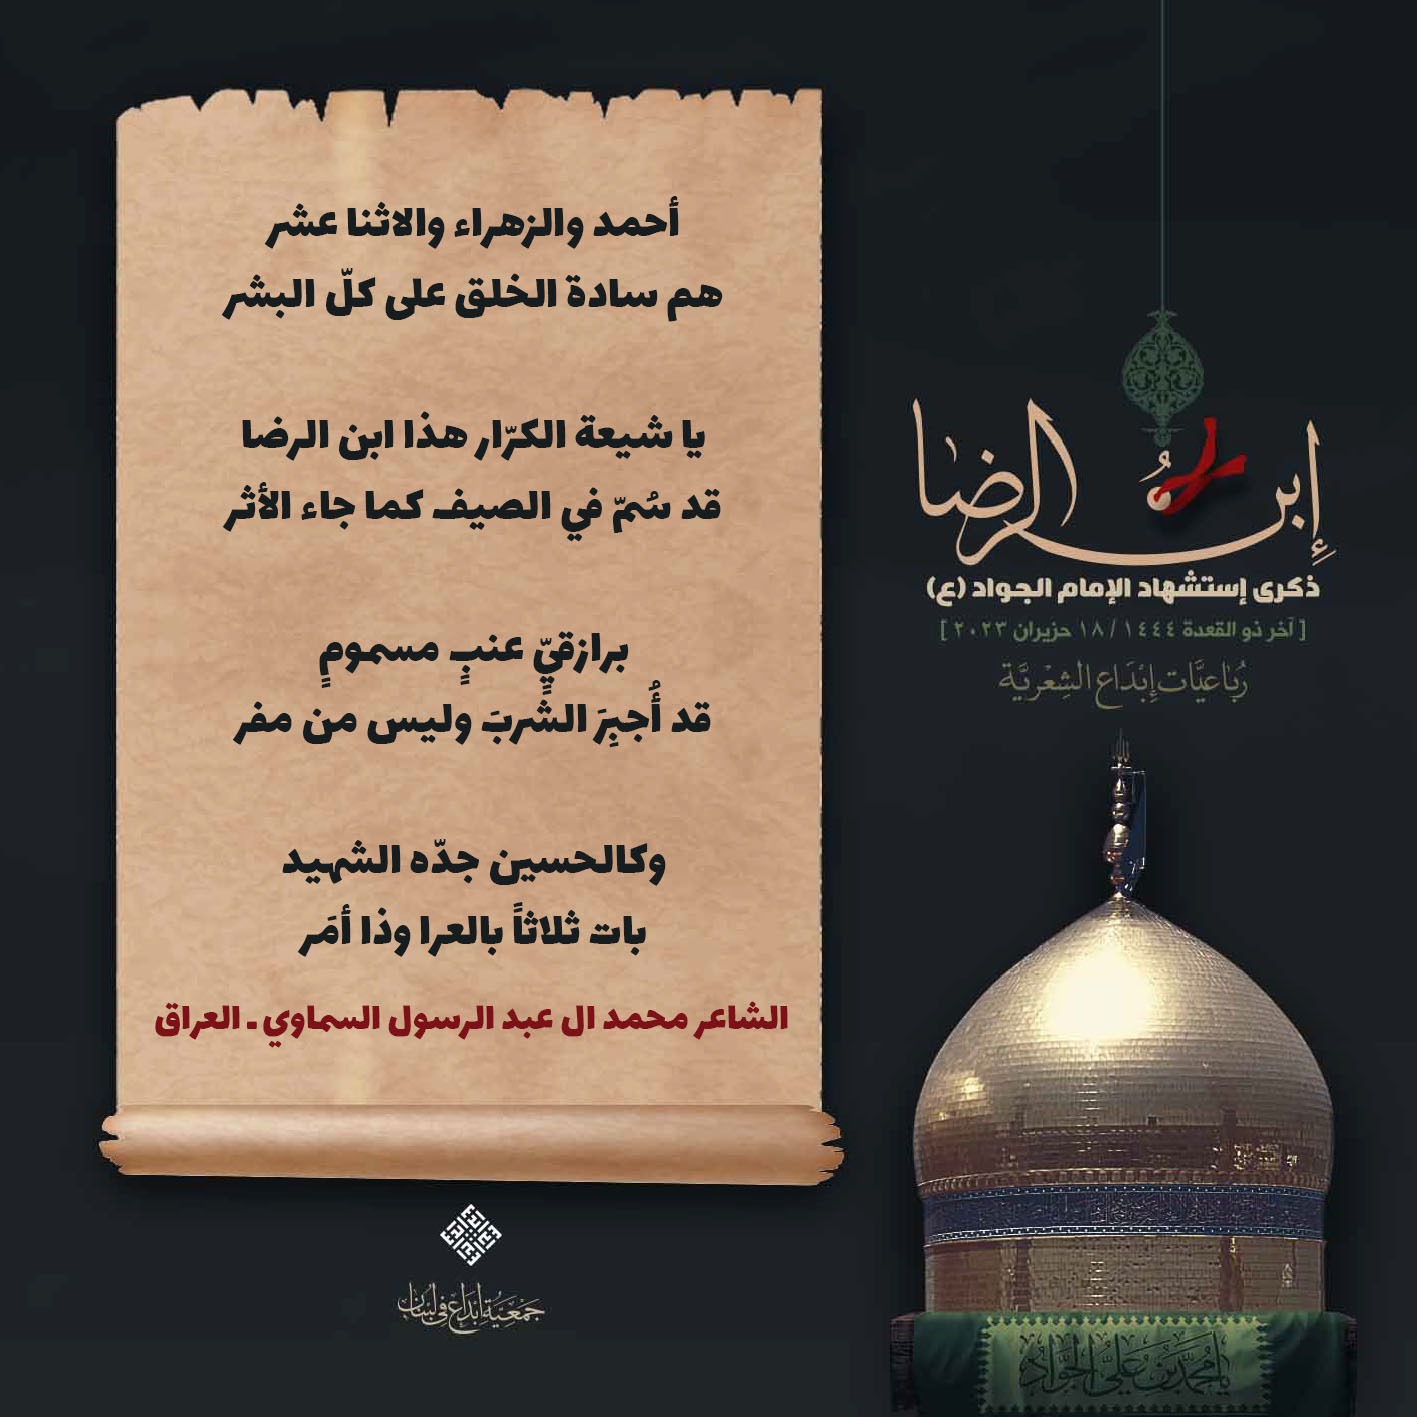 أحمد والزهراء والاثنا عشر
هم سادة الخلق على كلّ البشر
يا شيعة الكرّار هذا ابن الرضا
قد سُمّ في الصيف كما جاء الأثر
برازقيٍّ عنبٍ مسمومٍ
قد أُجبِرَ الشربَ وليس من مفر
وكالحسين جدّه الشهيد
بات ثلاثاً بالعرا وذا أمَر
الشاعر محمد ال عبد الرسول السماوي - العراق
إبن الرضا
ذكرى إستشهاد الإمام الجواد (ع)
[ آخر ذو القعدة ١٤٤٤ / ١٨ حزيران ٢٠٢٣ ]
رُبَاعيَّات إبْدَاع الشِعْريَّة
يا مُحمَّد بن عَليٍّ الجَوَاد
جَمْعيَّة إبْدَاع في لبْنَان